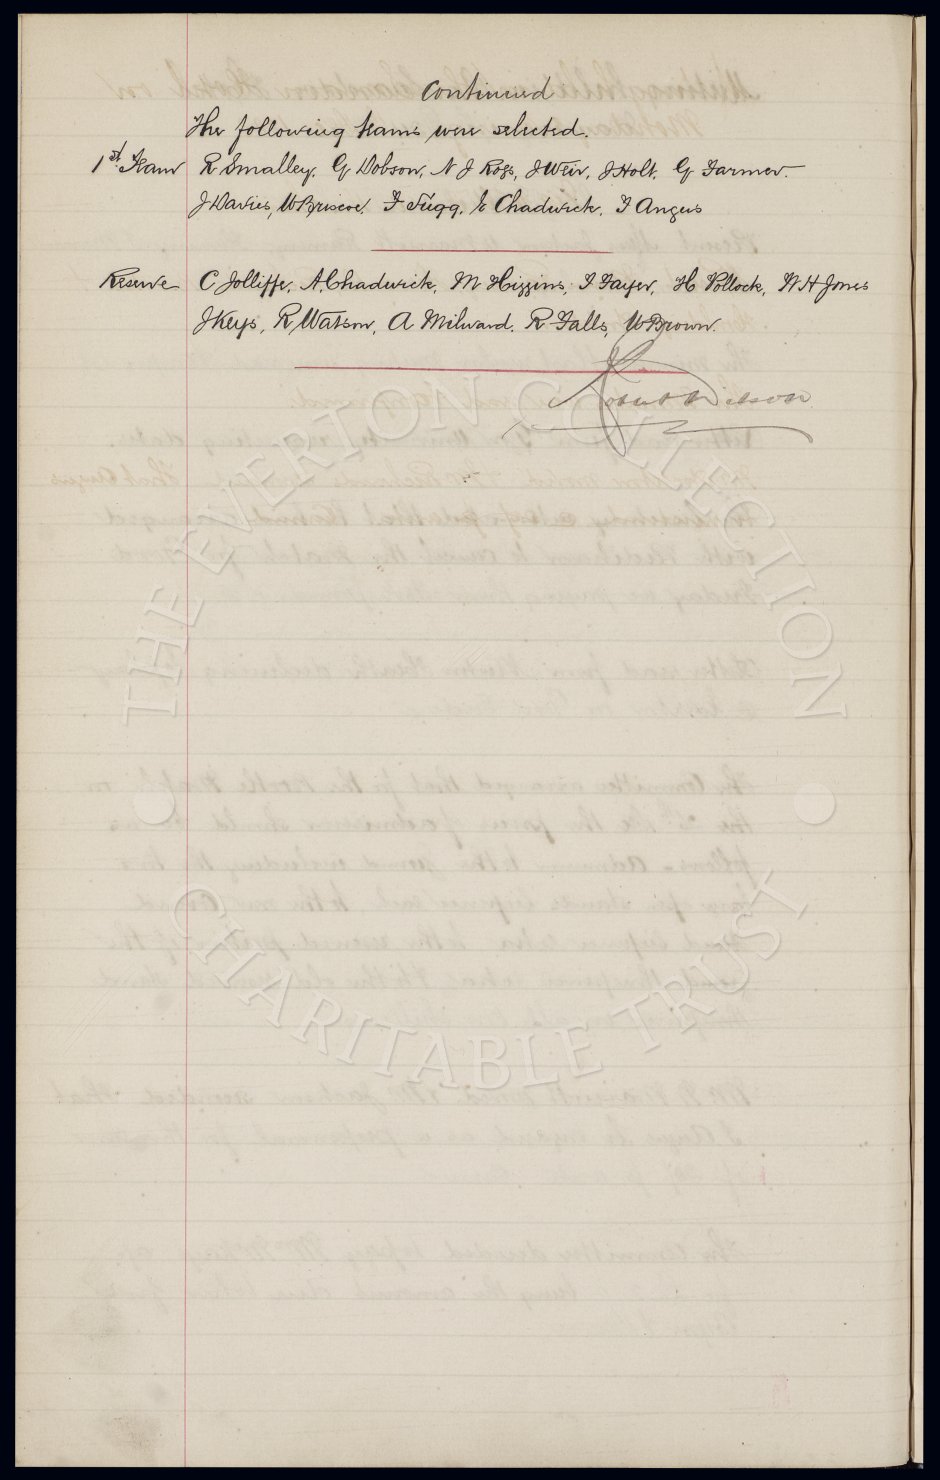 Continued
The following teams were selected.
1st Team R Smalley, G Dobson, N J Ross, J Weir, J Holt, G Farmer.
J Davies, W Briscoe, F Sugg, E Chadwick, J Angus
Reserve C Jolliffe, A Chadwick, M Higgins, F Fayer, H Pollock, W H Jones
J Keys, R Watson, A Milward, R Falls, W Brown.
THE EVERTON COLLECTION
CHARITABLE TRUST